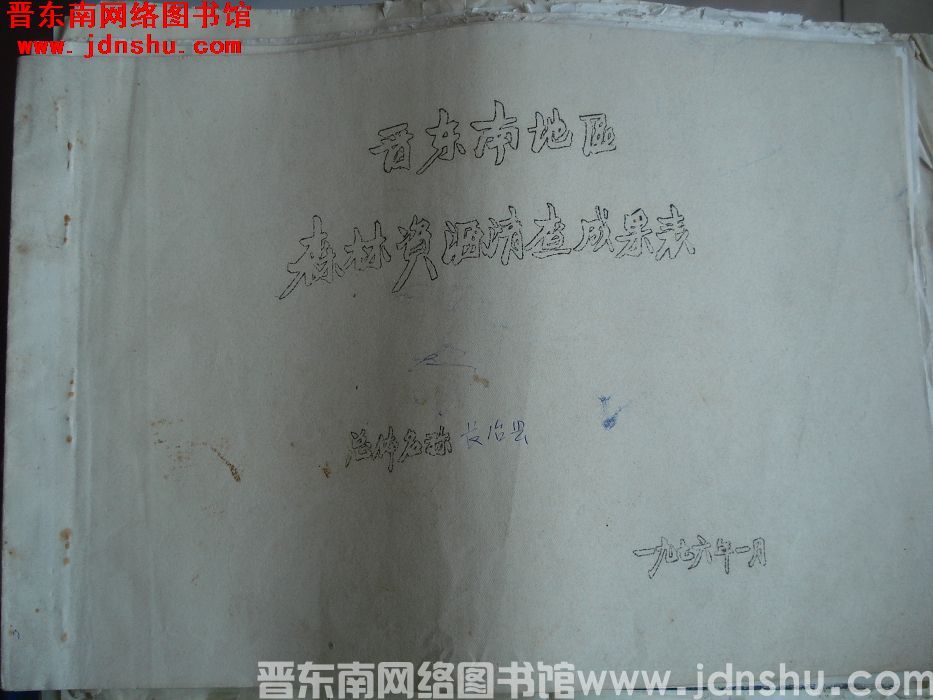 晋东南网络图书馆
www. jdnshu. com
晋东南地區
森林资源清查成果表
总体名称 长治县
一九七六年一月
晋东南网络图书馆www.jdnshu.com